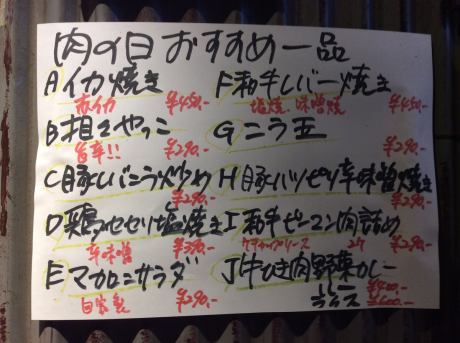 肉の日おすすめ一品
Aイカ焼き
赤イカ ¥450.-
B担々やっこ
旨辛!! ¥290.-
C豚レバニラ炒め
D鶏セセリ塩焼き
辛味噌 ¥390.-
Eマカロニサラダ
自家製 ¥290.-
F和牛レバー焼き
塩焼、味噌焼 ¥450.-
Gニラ玉
¥290.-
H豚ハツピリ辛味噌焼き
¥290.-
I和牛ピーマン肉詰め
ケチャップソース 2ケ ¥290.-
J牛ひき肉野菜カレー
¥400.-
ライス ¥600.-